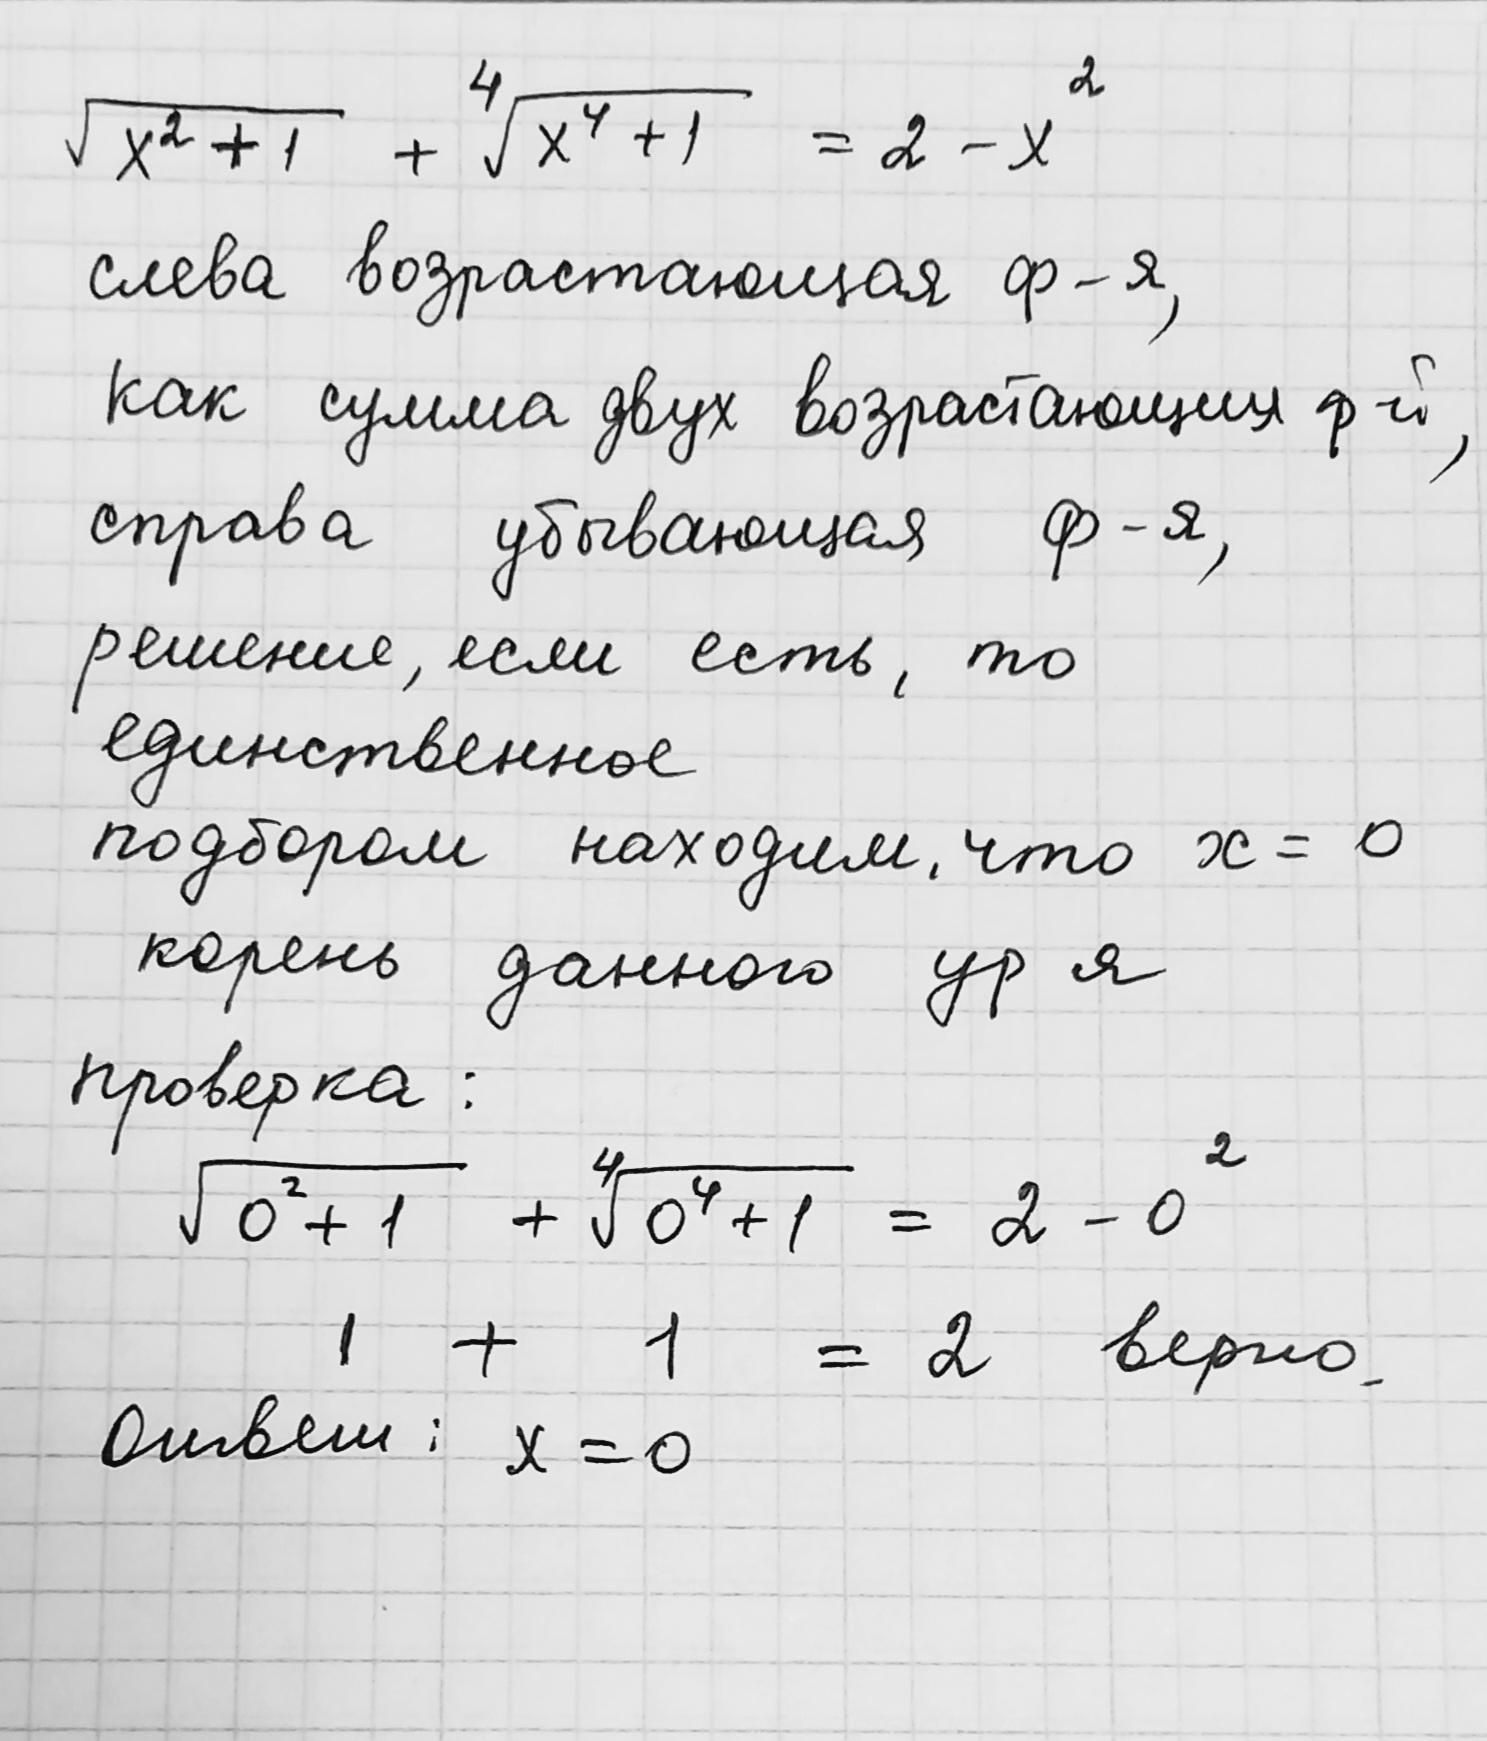 √(x² + 1) + ⁴√(x⁴ + 1) = 2 - x²
слева возрастающая ф-я,
как сумма двух возрастающих ф-й,
справа убывающая ф-я,
решение, если есть, то
единственное
подбором находим, что x = 0
корень данного ур я
проверка:
√(0² + 1) + ⁴√(0⁴ + 1) = 2 - 0²
1 + 1 = 2 верно.
Ответ: x = 0